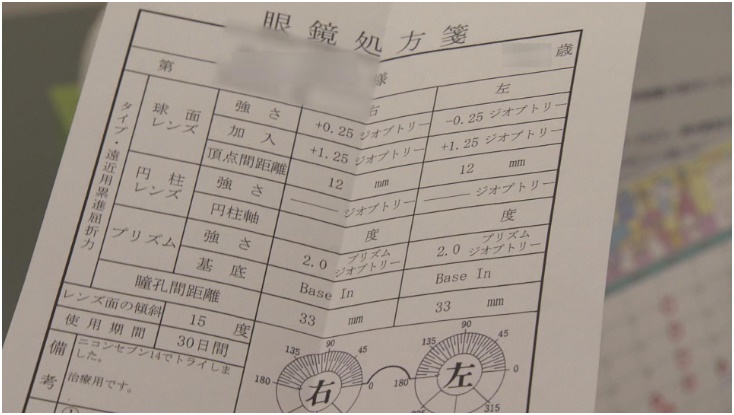 眼鏡処方箋
第 様 歳
右 左
タイプ・遠近用累進屈折力
球面レンズ 強さ +0.25 ジオプトリー -0.25 ジオプトリー
加入 +1.25 ジオプトリー +1.25 ジオプトリー
頂点間距離 12 mm 12 mm
円柱レンズ 強さ ジオプトリー ジオプトリー
円柱軸 度 度
プリズム 強さ 2.0 プリズムジオプトリー 2.0 プリズムジオプトリー
基底 Base In Base In
瞳孔間距離 33 mm 33 mm
レンズ面の傾斜 15 度
使用期間 30日間
備考 ニコンセブン14でトライしま
した。
治療用です。
135 90 45 180 0 右
135 90 45 180 0 315 左